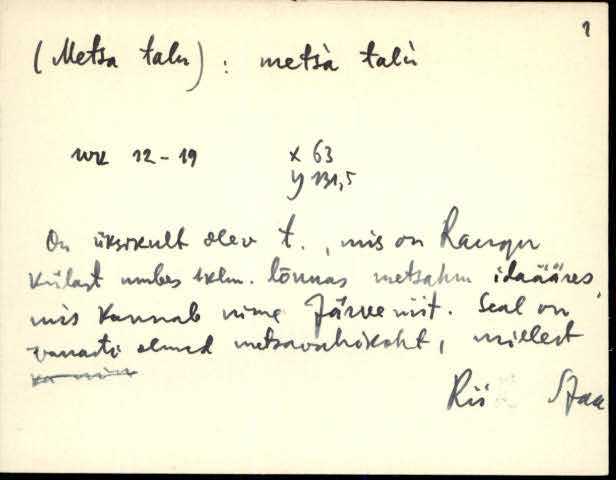 1
(Metsa talu) : metsà talù
WK 12-19 x 63
y 131,5
On üksikult olev t., mis on
külast umbes 1klm. lõunas metsatuka idaääres,
mis kannab nime Järve niit. Seal on
vanasti olnud metsavahikoht, millest
Rii